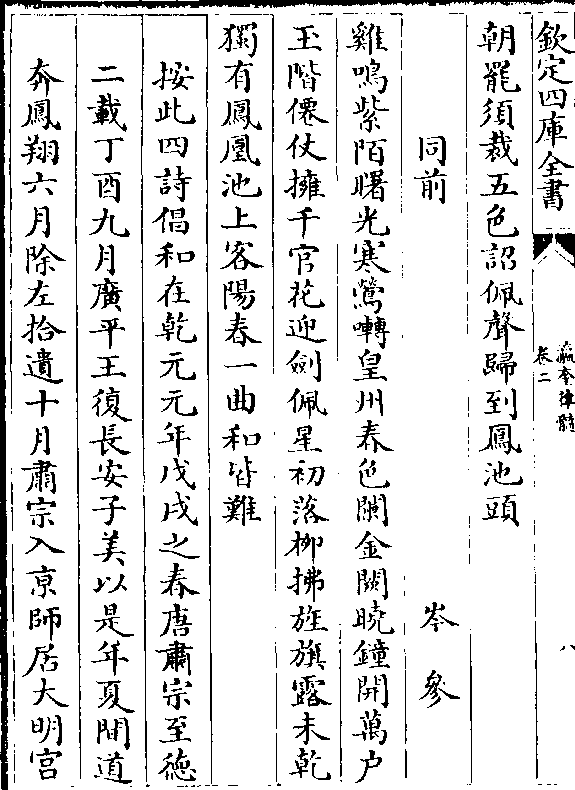 欽定四庫全書
瀛奎律髓
卷二
八
朝罷須裁五色詔佩聲歸到鳳池頭
同前　岑參
雞鳴紫陌曙光寒鶯囀皇州春色闌金闕曉鐘開萬户
玉階僊仗擁千官花迎劍佩星初落柳拂旌旗露未乾
獨有鳳凰池上客陽春一曲和皆難
按此四詩倡和在乾元元年戊戌之春唐肅宗至德
二載丁酉九月廣平王復長安子美以是年夏間道
奔鳳翔六月除左拾遺十月肅宗入京師居大明宫